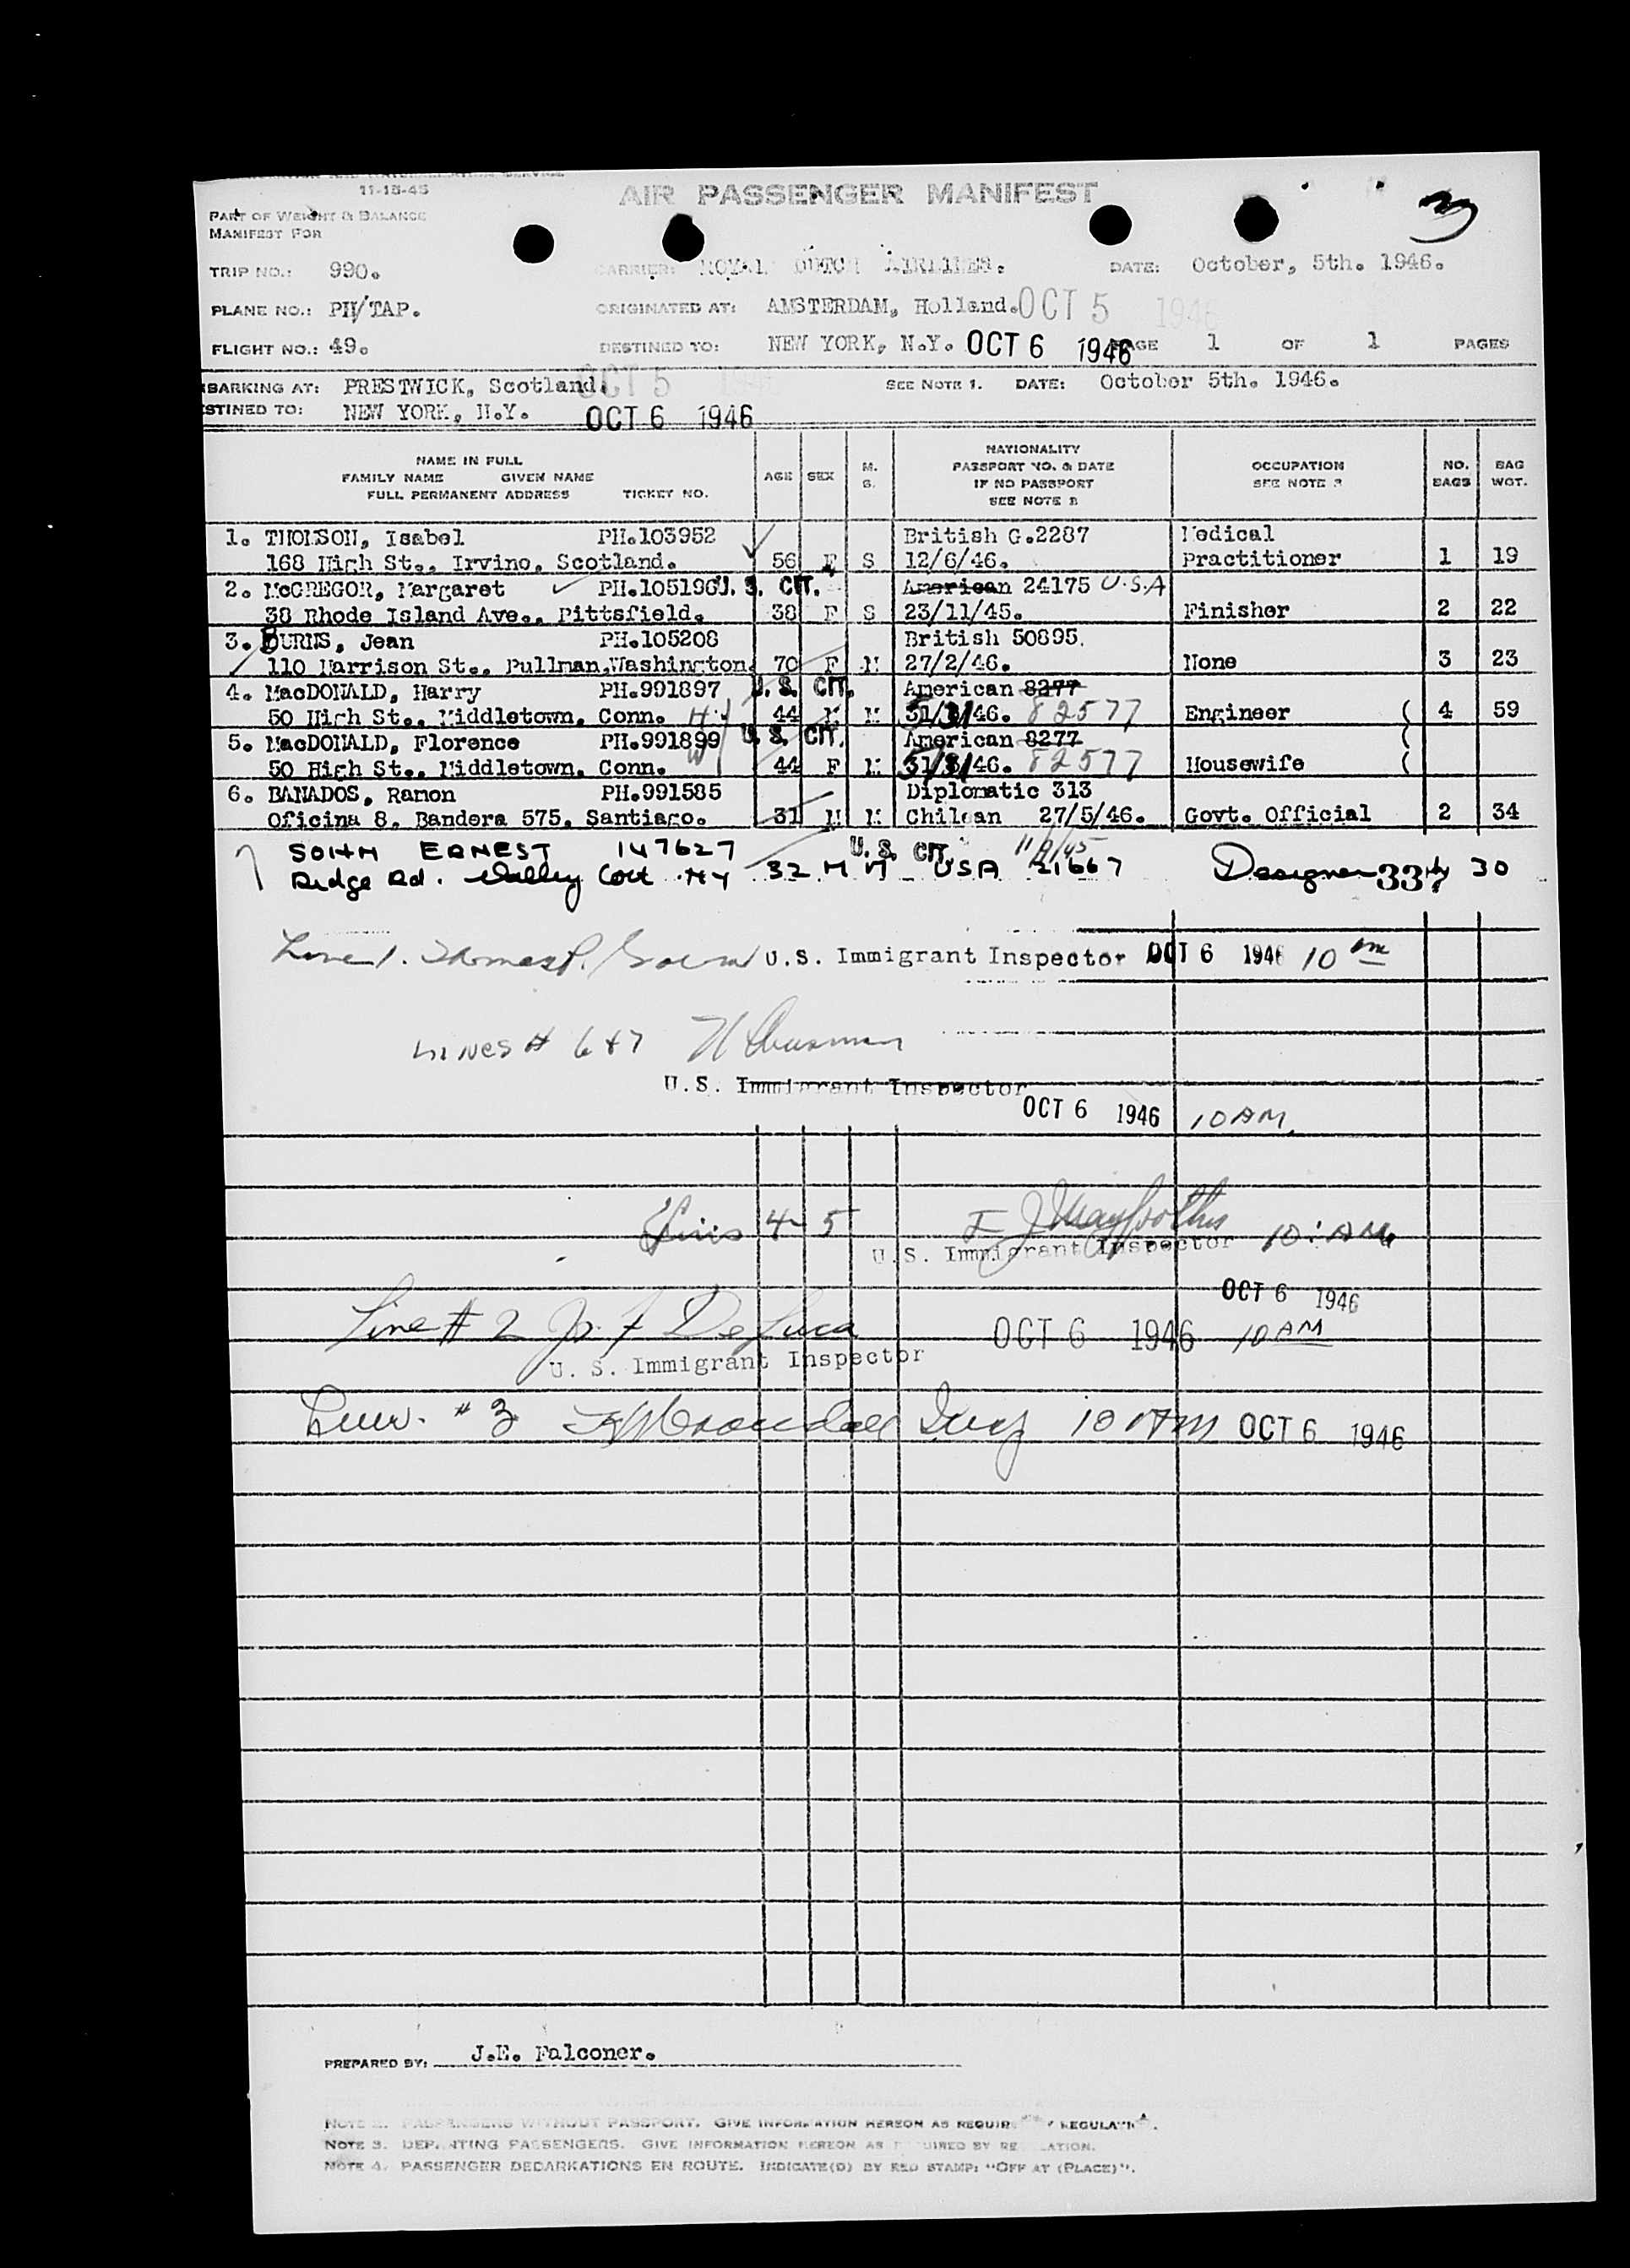 11-15-45
AIR PASSENGER MANIFEST
PART OF WEIGHT & BALANCE
MANIFEST FOR
TRIP NO.: 990. CARRIER: ROYAL DUTCH AIRLINES. DATE: October, 5th. 1946.
PLANE NO.: PH/TAP. ORIGINATED AT: AMSTERDAM, Holland. OCT 5 1946
FLIGHT NO.: 49. DESTINED TO: NEW YORK, N.Y. OCT 6 1946 PAGE 1 OF 1 PAGES
BARKING AT: PRESTWICK, Scotland. OCT 5 SEE NOTE 1. DATE: October 5th. 1946.
STINED TO: NEW YORK, N.Y. OCT 6 1946
NAME IN FULL
FAMILY NAME GIVEN NAME
FULL PERMANENT ADDRESS TICKET NO. AGE SEX M. S. NATIONALITY PASSPORT NO. & DATE IF NO PASSPORT SEE NOTE 2 OCCUPATION SEE NOTE 3 NO. BAGS BAG WGT.
1. THOMSON, Isabel PH.103952 British G.2287 Medical
168 High St., Irvine, Scotland. 56 F S 12/6/46. Practitioner 1 19
2. McGREGOR, Margaret PH.105196 U. S. CIT. American 24175 U.S.A
38 Rhode Island Ave., Pittsfield. 38 F S 23/11/45. Finisher 2 22
3. BURNS, Jean PH.105208 British 50895.
110 Harrison St., Pullman, Washington. 70 F M 27/2/46. None 3 23
4. MacDONALD, Harry PH.991897 U. S. CIT. American 8277
50 High St., Middletown, Conn. H 44 M M 46. 82577 Engineer ( 4 59
5. MacDONALD, Florence PH.991899 U. S. CIT. American 8277
50 High St., Middletown, Conn. W 44 F M 46. 82577 Housewife (
6. BANADOS, Ramon PH.991585 Diplomatic 313
Oficina 8, Bandera 575, Santiago. 31 M M Chilean 27/5/46. Govt. Official 2 34
7 SOHN ERNEST 147627 U. S. CIT.
Ridge Rd. Valley NY 32 M M USA 21667 Designer 30
Line 1. U.S. Immigrant Inspector OCT 6 1946 10 am
LINES # 6 & 7
U.S. Immigrant Inspector
OCT 6 1946 10 AM.
Lines 4-5 10: AM
U.S. Immigrant Inspector
OCT 6 1946
Line # 2 De Luca OCT 6 1946 10 AM
U. S. Immigrant Inspector
# 3 10 AM OCT 6 1946
PREPARED BY: J.E. Falconer.
NOTE 2. PASSENGERS WITHOUT PASSPORT. GIVE INFORMATION HEREON AS REQUIR REGULATI.
NOTE 3. DEPARTING PASSENGERS. GIVE INFORMATION HEREON AS REQUIRED BY REGULATION.
NOTE 4. PASSENGER DEBARKATIONS EN ROUTE. INDICATE(D) BY RED STAMP: "OFF AT (PLACE)".